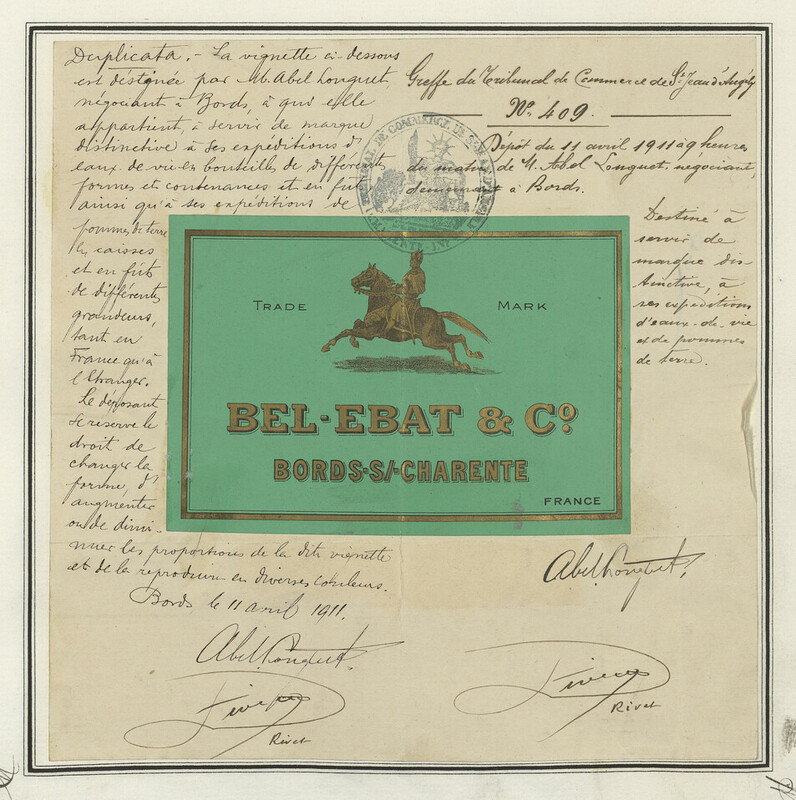 Duplicata. - La vignette ci-dessous
est destinée par M. Abel Longuet,
négociant à Bords, à qui elle
appartient, à servir de marque
distinctive à ses expéditions d'
eaux-de-vie en bouteilles de différentes
formes et contenances et en fûts
ainsi qu'à ses expéditions de
pommes de terre
en caisses
et en fûts
de différentes
grandeurs,
tant en
France qu'à
l'Etranger.
Le déposant
se réserve le
droit de
changer la
forme, d'
augmenter
ou de dimi-
nuer les proportions de la dite vignette
et de la reproduire en diverses couleurs.
Bords, le 11 avril 1911.
Abel Longuet
Rivet
Greffe du Tribunal de Commerce de St Jean d'Angély
No 409.
Dépôt du 11 avril 1911 à 9 heures
du matin, de M. Abel Longuet, négociant,
demeurant à Bords.
Destiné à
servir de
marque dis-
tinctive, à
ses expéditions
d'eaux-de-vie
et de pommes
de terre.
TRADE MARK
BEL-EBAT & Co
BORDS-S/-CHARENTE
FRANCE
Abel Longuet
Rivet